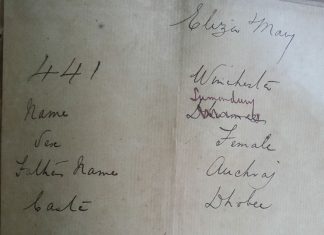 Eliza May
441 Winchester
Name
Sex Female
Father's Name Auchraj
Caste Dhobee